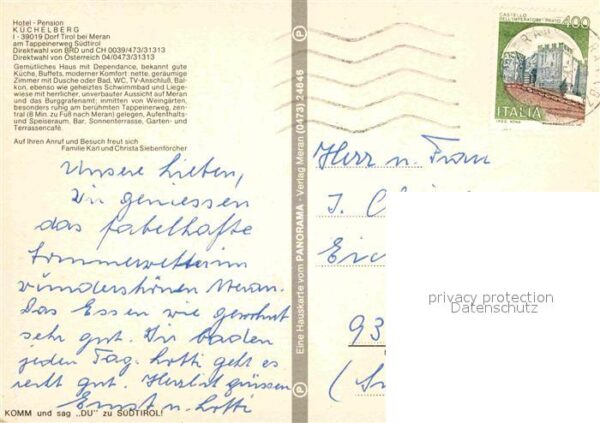 Hotel - Pension
KÜCHELBERG
I - 39019 Dorf Tirol bei Meran
am Tappeinerweg Südtirol
Direktwahl von BRD und CH 0039/473/31313
Direktwahl von Österreich 04/0473/31313
Gemütliches Haus mit Dependance, bekannt gute
Küche, Buffets, moderner Komfort: nette, geräumige
Zimmer mit Dusche oder Bad, WC, TV-Anschluß, Bal-
kon, ebenso wie geheiztes Schwimmbad und Liege-
wiese mit herrlicher, unverbauter Aussicht auf Meran
und das Burggrafenamt; inmitten von Weingärten,
besonders ruhig am berühmten Tappeinerweg, zen-
tral (8 Min. zu Fuß nach Meran) gelegen, Aufenthalts-
und Speiseraum, Bar, Sonnenterrasse, Garten- und
Terrassencafé.
Auf Ihren Anruf und Besuch freut sich
Familie Karl und Christa Siebenförcher
Unsere Lieben,
Wir geniessen
das fabelhafte
Sommerwetter im
wunderschönen Meran.
Das Essen wie gewohnt
sehr gut. Wir baden
jeden Tag. Lotti geht es
recht gut. Herzlich grüssen
Ernst u. Lotti
KOMM und sag „DU" zu SÜDTIROL!
Eine Hauskarte vom PANORAMA - Verlag Meran (0473) 24646
P
P
CASTELLO
DELL'IMPERATORE - PRATO
400
ITALIA
Herr u. Frau
J.
93
privacy protection
Datenschutz